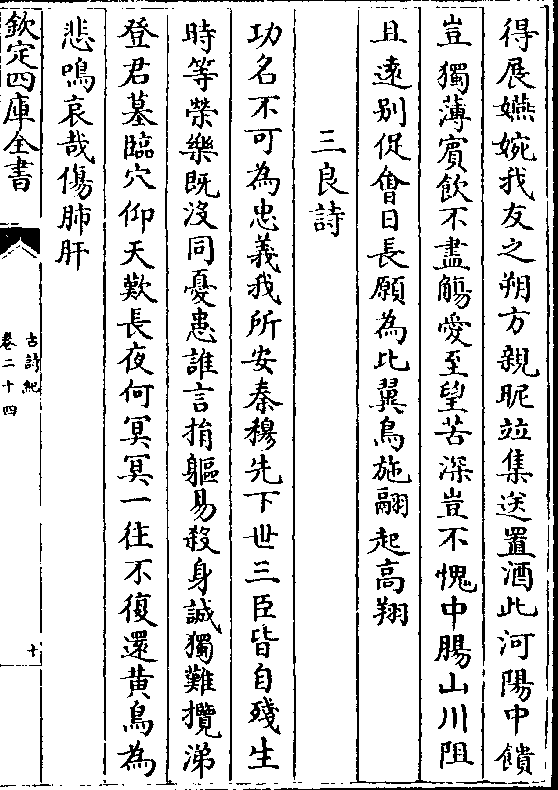 得展嬿婉我友之朔方親昵竝集送置酒此河陽中饋
豈獨薄賓飲不盡觴愛至望苦深豈不愧中腸山川阻
且遠别促會日長願為比翼鳥施翮起高翔
三良詩
功名不可為忠義我所安秦穆先下世三臣皆自殘生
時等榮樂既沒同憂患誰言捐軀易殺身誠獨難攬涕
登君墓臨穴仰天歎長夜何冥冥一往不復還黄鳥為
悲鳴哀哉傷肺肝
欽定四庫全書
古詩紀
卷二十四
十